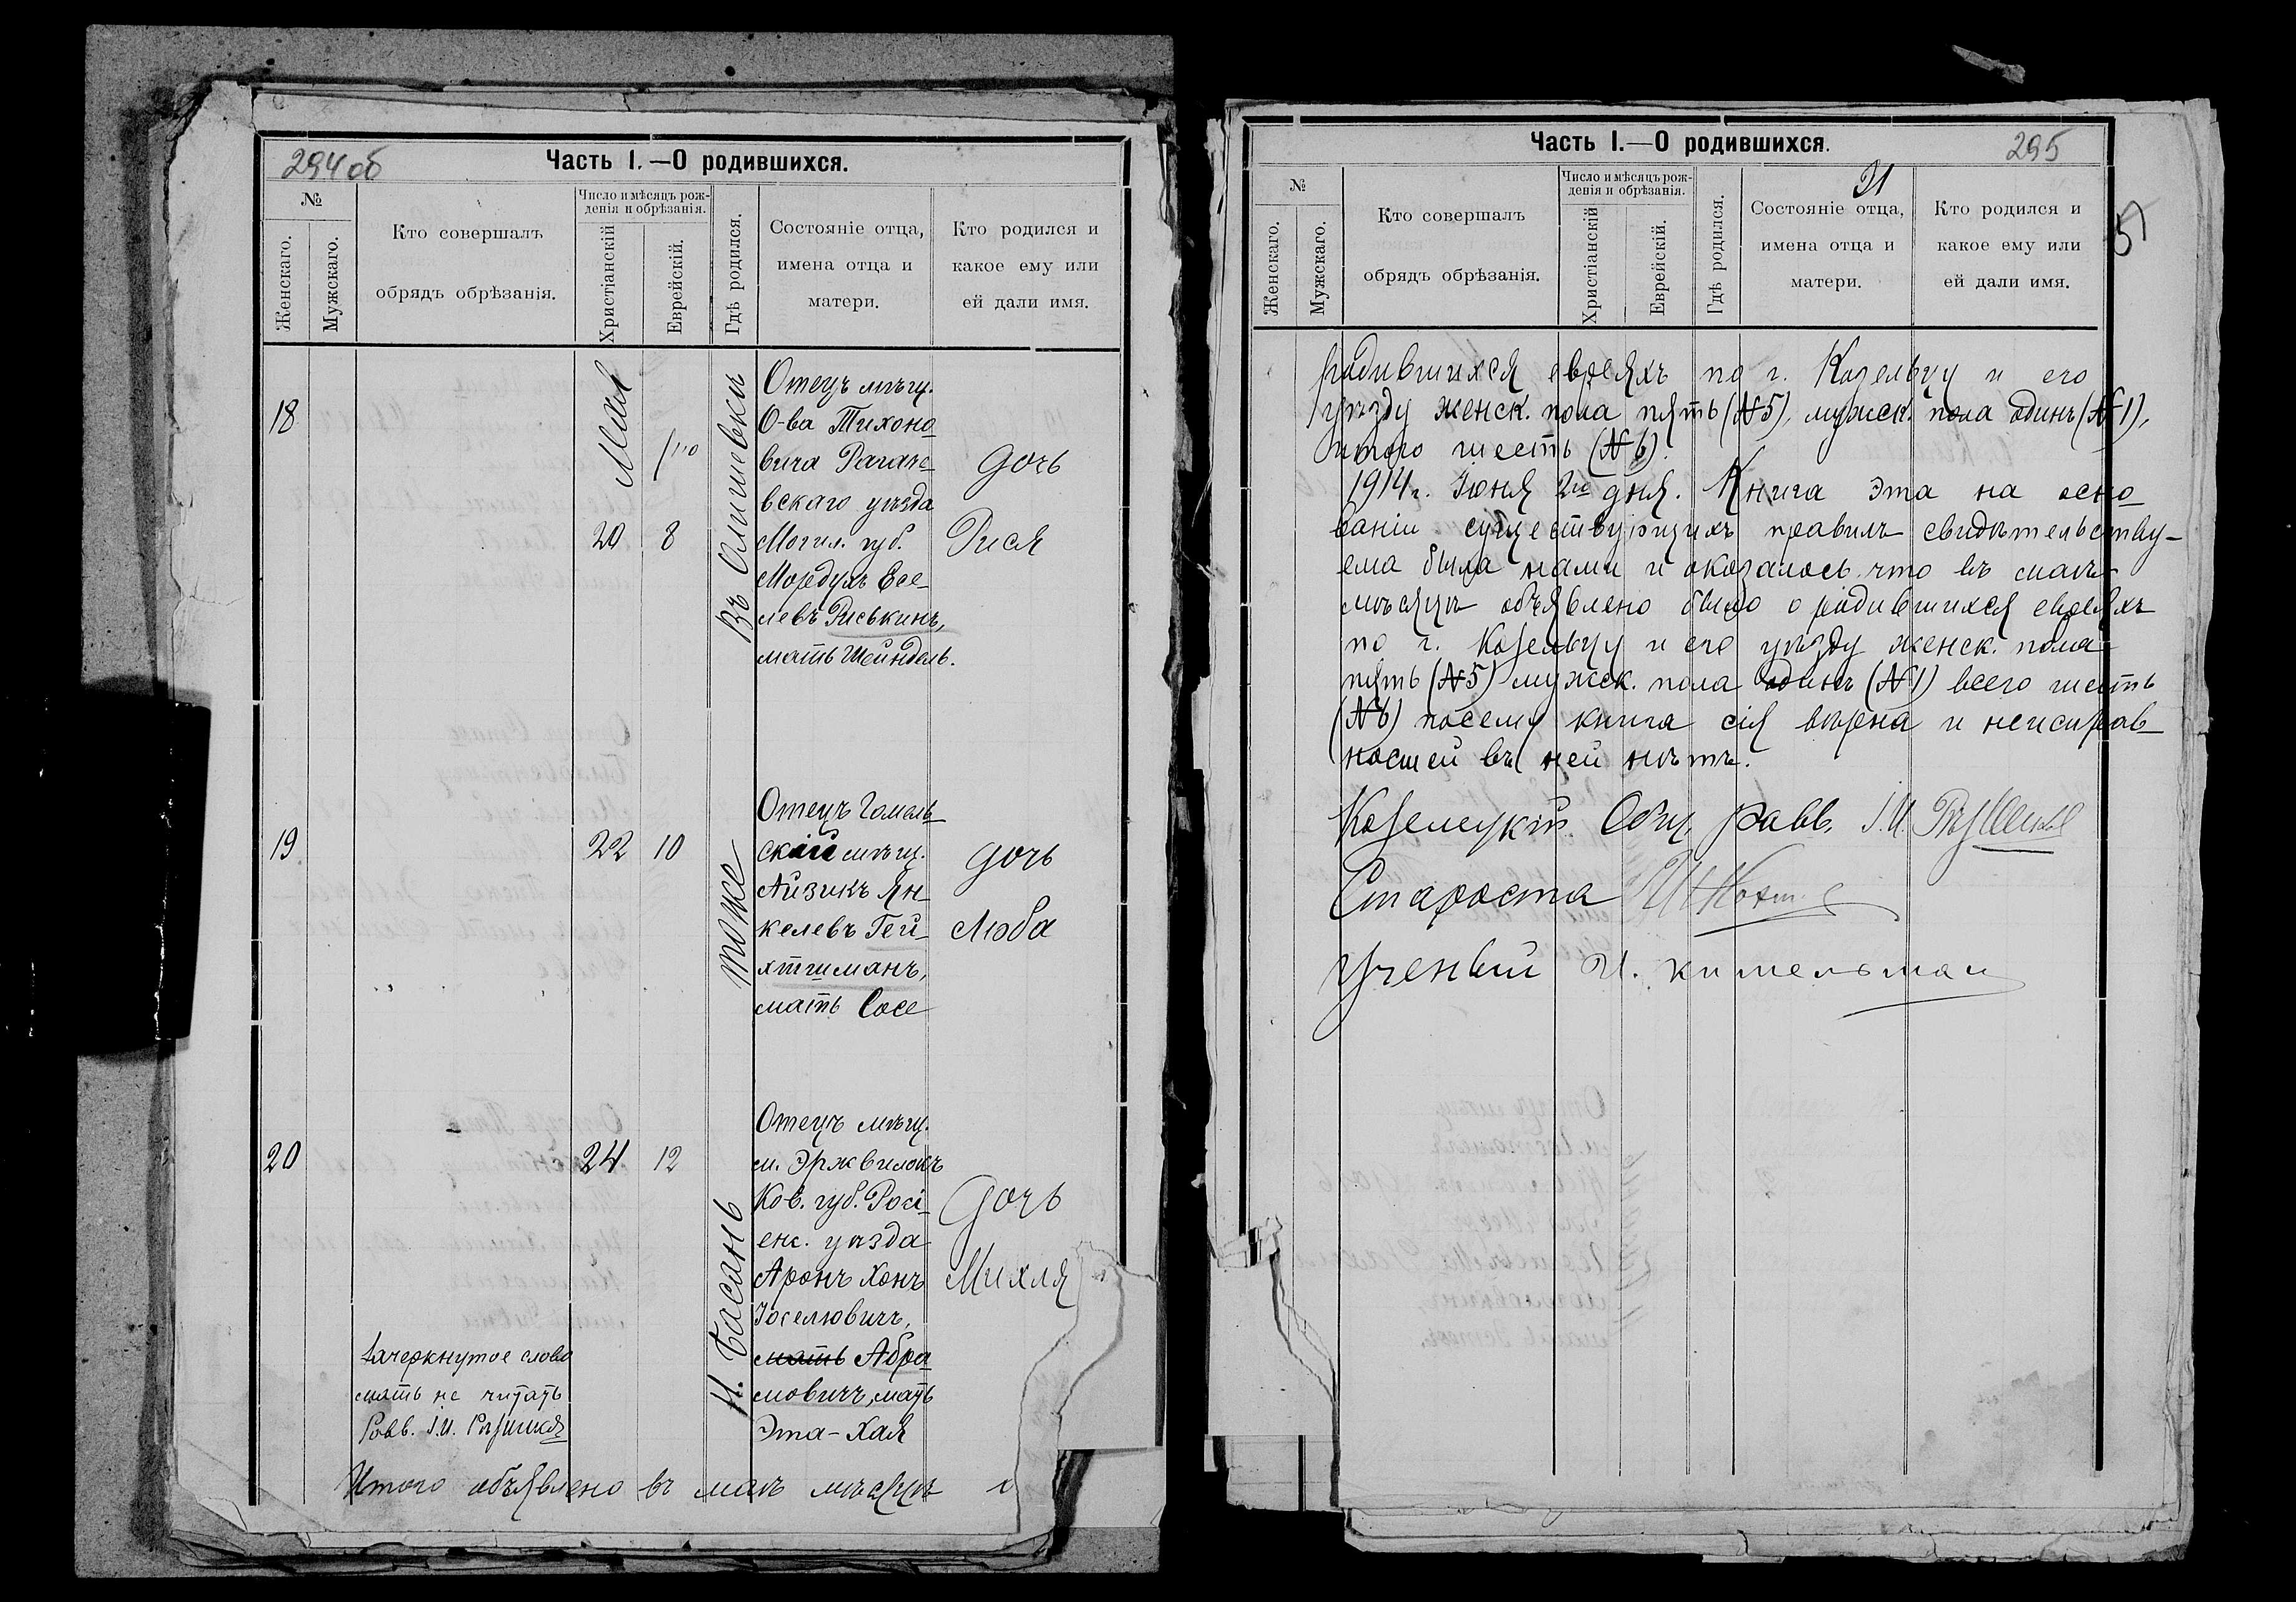 294 об
Часть I.—О родившихся.
№
Женскаго.
Мужскаго.
Кто совершалъ
обрядъ обрѣзанія.
Число и мѣсяцъ рож-
денія и обрѣзанія.
Христіанскій
Еврейскій.
Гдѣ родился.
Состояніе отца,
имена отца и
матери.
Кто родился и
какое ему или
ей дали имя.
18
Мая
20
8
Въ Олишевкѣ
Отецъ мѣщ.
О-ва Тихоно
вича Рагаче
вскаго уѣзда
Могил. губ.
Мордухъ Есе-
левъ Риськинъ,
мать Шейндель.
дочь
Рися
19
22
10
тоже
Отецъ Гомель
скій мѣщ.
Айзикъ Ян
келевъ Гей-
хтшманъ,
мать Сосе
дочь
Люба
20
24
12
Н. Басань
Отецъ мѣщ.
м. Эржвилокъ
Ков. губ. Росі
енс. уѣзда
Аронъ Хонъ
Іоселовичъ,
мать Абра
мовичъ, мать
Эта-Хая
дочь
Михля
Зачеркнутое слово
мать не читать
Равв. І.И.
Итого объявлено въ маѣ мѣсяцѣ о
Часть I.—О родившихся.
295
31
5
№
Женскаго.
Мужскаго.
Кто совершалъ
обрядъ обрѣзанія.
Число и мѣсяцъ рож-
денія и обрѣзанія.
Христіанскій
Еврейскій.
Гдѣ родился.
Состояніе отца,
имена отца и
матери.
Кто родился и
какое ему или
ей дали имя.
родившихся евреяхъ по г. Козельцу и его
уѣзду женск. пола пять (№5), мужск. пола одинъ (№1),
итого шесть (№6).
1914 г. Іюня 2го дня. Книга эта на осно
ваніи существующихъ правилъ свидѣтельству-
ема была нами и оказалось что въ маѣ
мѣсяцѣ объявлено было о родившихся евреяхъ
по г. Козельцу и его уѣзду женск. пола
пять (№5) мужск. пола одинъ (№1) всего шесть
(№6) посему книга сія вѣрна и неисправ
ностей въ ней нѣтъ.
Козелецкій Общ. равв. І.И.
Староста
Ученый И. Кительман